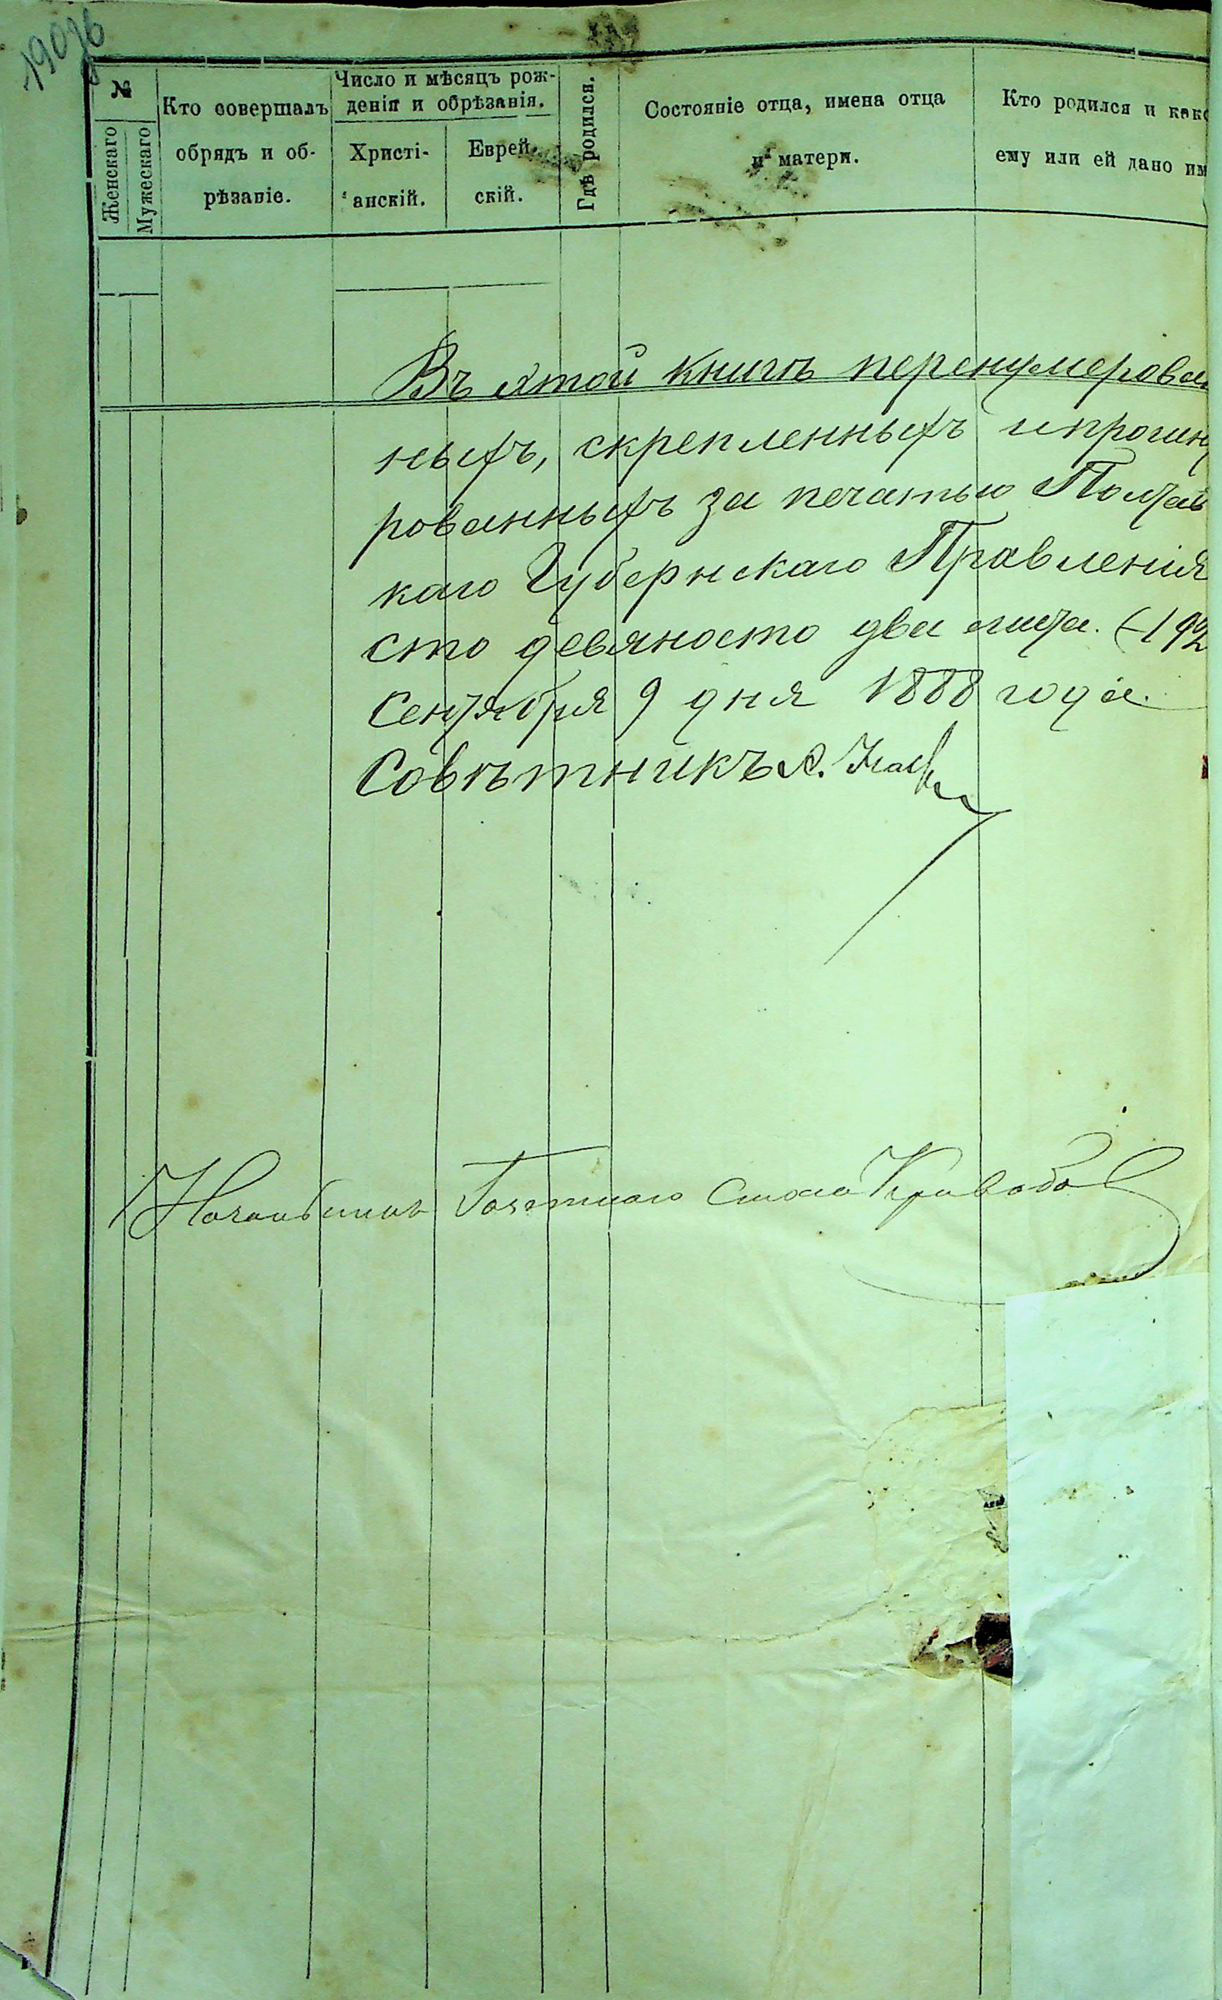 190 об
№
Женскаго
Мужескаго
Кто совершалъ
обрядъ и об-
рѣзаніе.
Число и мѣсяцъ рож-
денія и обрѣзанія.
Христі-
анскій.
Еврей-
скій.
Гдѣ родился.
Состояніе отца, имена отца
и матери.
Кто родился и како
ему или ей дано им
Въ этой книгѣ перенумерован
ныхъ, скрепленныхъ и прошну
рованныхъ за печатью Полтавс
каго Губернскаго Правленія
сто девяносто два листа. (-192
Сентября 9 дня 1888 года
Совѣтникъ А.
Стола